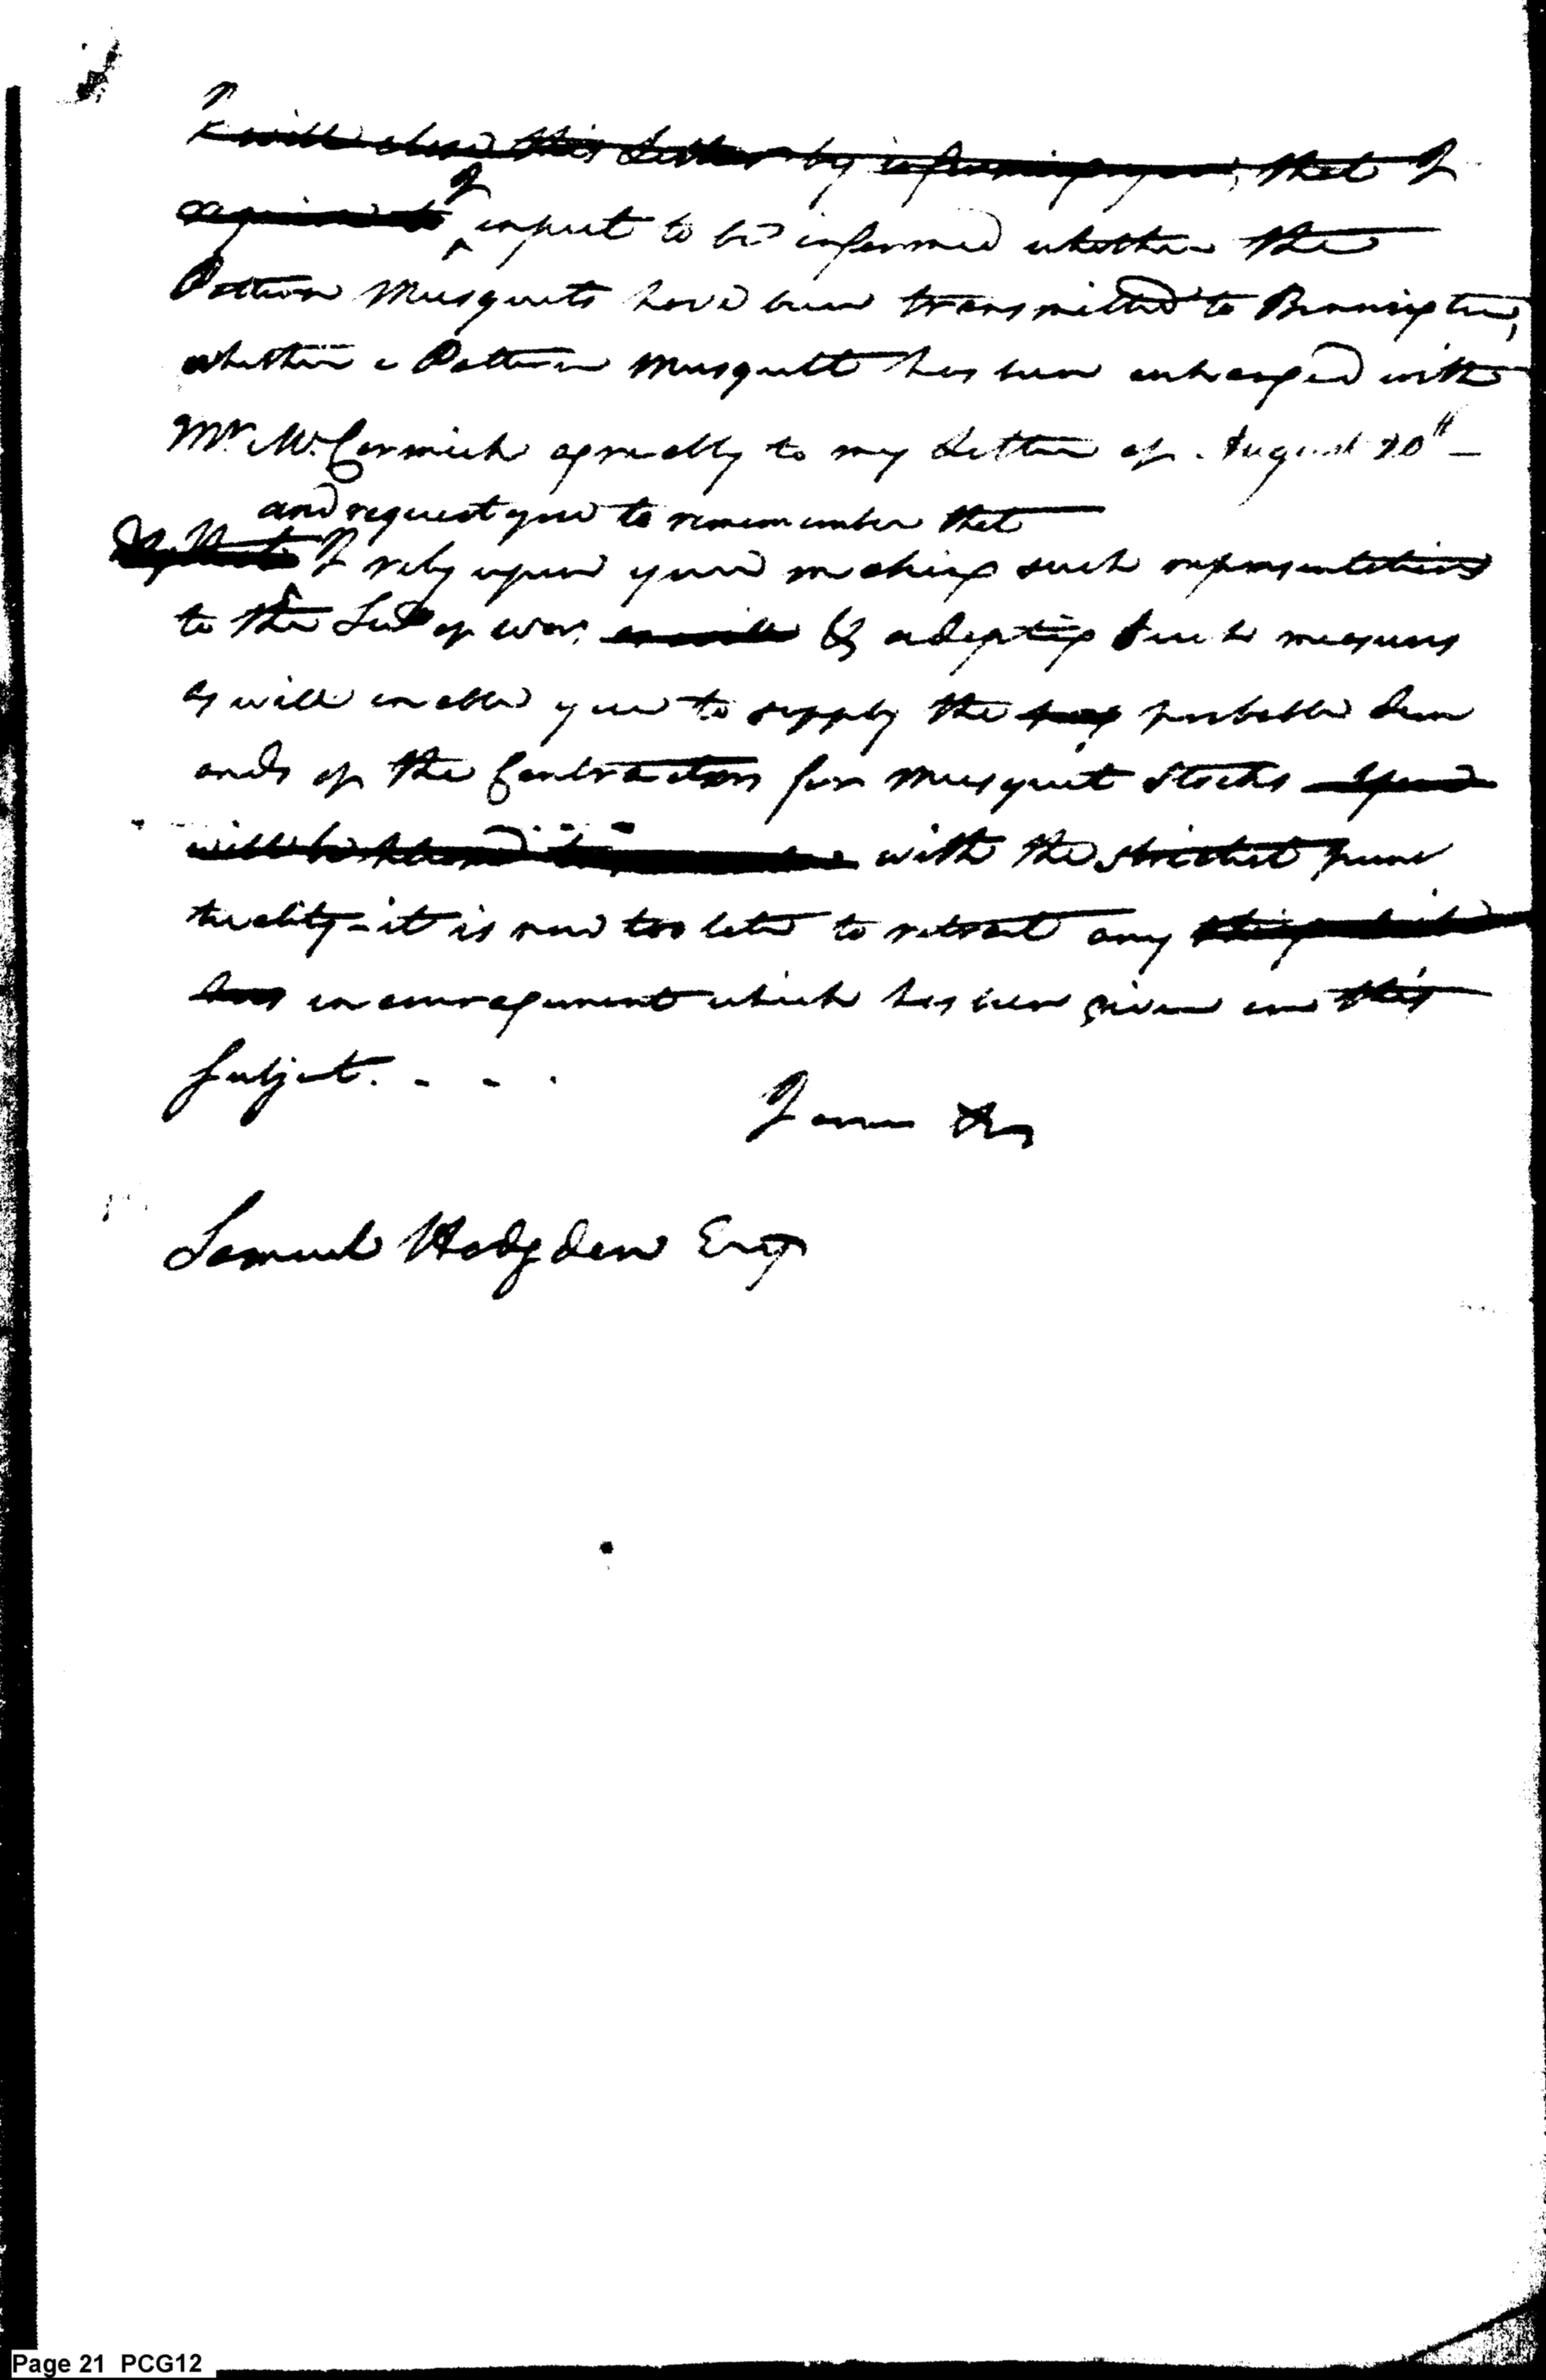 I will close this Letter by informing you, that I
I
expect to be informed whether the
Pattern Musquets have been transmitted to Bennington,
whether a Pattern Musquett has been exchanged with
Mr. McCormick agreeably to my Letter of August 20th —
and request you to rememember that
I rely upon your making such representations
to the Secy of War, & adopting such measures
as will enable you to supply the probable dem
ands of the Contractors for Musquet Stocks
with the strictest punc
tuality - it is now too late to retreat any
has encouragement which has been given on this
subject. - - .
I am &c
Samuel Hodgden Esqr
Page 21 PCG12